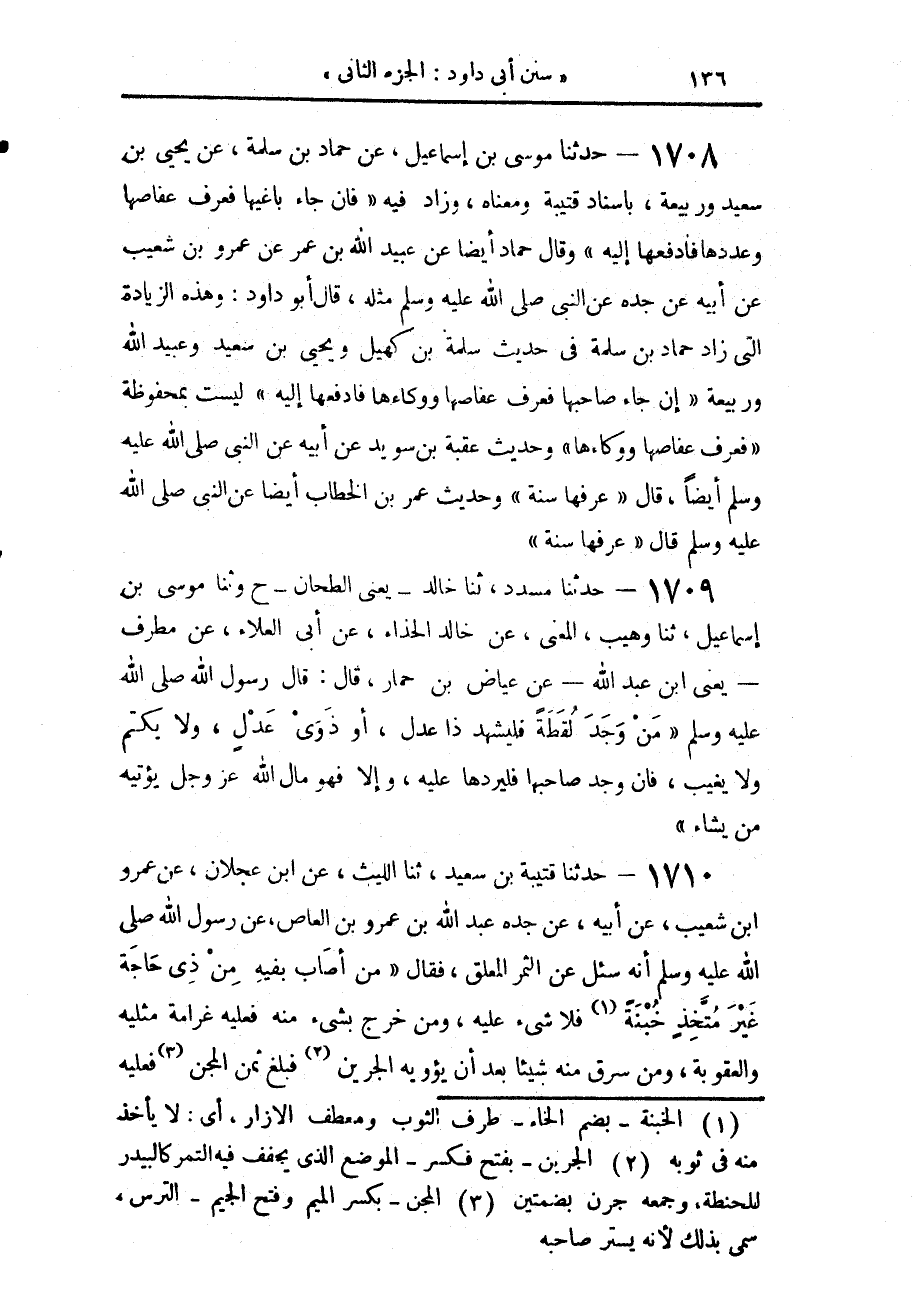 ١٣٦ « سنن أبى داود : الجزء الثانى »
١٧٠٨ — حدثنا موسى بن إسماعيل ، عن حماد بن سلمة ، عن يحيى بن
سعيد وربيعة ، باسناد قتيبة ومعناه ، وزاد فيه « فان جاء باغيها فعرف عفاصها
وعددها فادفعها إليه » وقال حماد أيضا عن عبيد الله بن عمر عن عمرو بن شعيب
عن أبيه عن جده عن النبى صلى الله عليه وسلم مثله ، قال أبو داود : وهذه الزيادة
التى زاد حماد بن سلمة فى حديث سلمة بن كهيل ويحيى بن سعيد وعبيد الله
وربيعة « إن جاء صاحبها فعرف عفاصها ووكاءها فادفعها إليه » ليست بمحفوظة
« فعرف عفاصها ووكاءها» وحديث عقبة بن سويد عن أبيه عن النبى صلى الله عليه
وسلم أيضاً ، قال « عرفها سنة » وحديث عمر بن الخطاب أيضا عن النبى صلى الله
عليه وسلم قال « عرفها سنة »
١٧٠٩ — حدثنا مسدد ، ثنا خالد ـ يعنى الطحان ـ ح وثنا موسى بن
إسماعيل ، ثنا وهيب ، المعنى ، عن خالد الحذاء ، عن أبى العلاء ، عن مطرف
— يعنى ابن عبد الله — عن عياض بن حمار ، قال : قال رسول الله صلى الله
عليه وسلم « مَنْ وَجَدَ لُقَطَةً فليشهد ذا عدل ، أو ذَوَىْ عَدْلٍ ، ولا يكتم
ولا يغيب ، فان وجد صاحبها فليردها عليه ، وإلا فهو مال الله عز وجل يؤتيه
من يشاء »
١٧١٠ — حدثنا قتيبة بن سعيد ، ثنا الليث ، عن ابن عجلان ، عن عمرو
ابن شعيب ، عن أبيه ، عن جده عبد الله بن عمرو بن العاص،عن رسول الله صلى
الله عليه وسلم أنه سئل عن الثمر المعلق ، فقال « من أصَاب بفيهِ مِنْ ذِى حَاجَة
غَيْرَ مُتَّخِذٍ خُبْنَةً (١) فلا شىء عليه ، ومن خرج بشىء منه فعليه غرامة مثليه
والعقوبة ، ومن سرق منه شيئا بعد أن يؤويه الجرين (٢) فبلغ ثمن المجن (٣) فعليه
(١) الخبنة ـ بضم الخاء ـ طرف الثوب ومعطف الازار ، أى : لا يأخذ
منه فى ثوبه (٢) الجرين ـ بفتح فكسر ـ الموضع الذى يجفف فيه التمر كالبيدر
للحنطة، وجمعه جرن بضمتين (٣) المجن ـ بكسر الميم وفتح الجيم ـ الترس ،
سمى بذلك لأنه يستر صاحبه